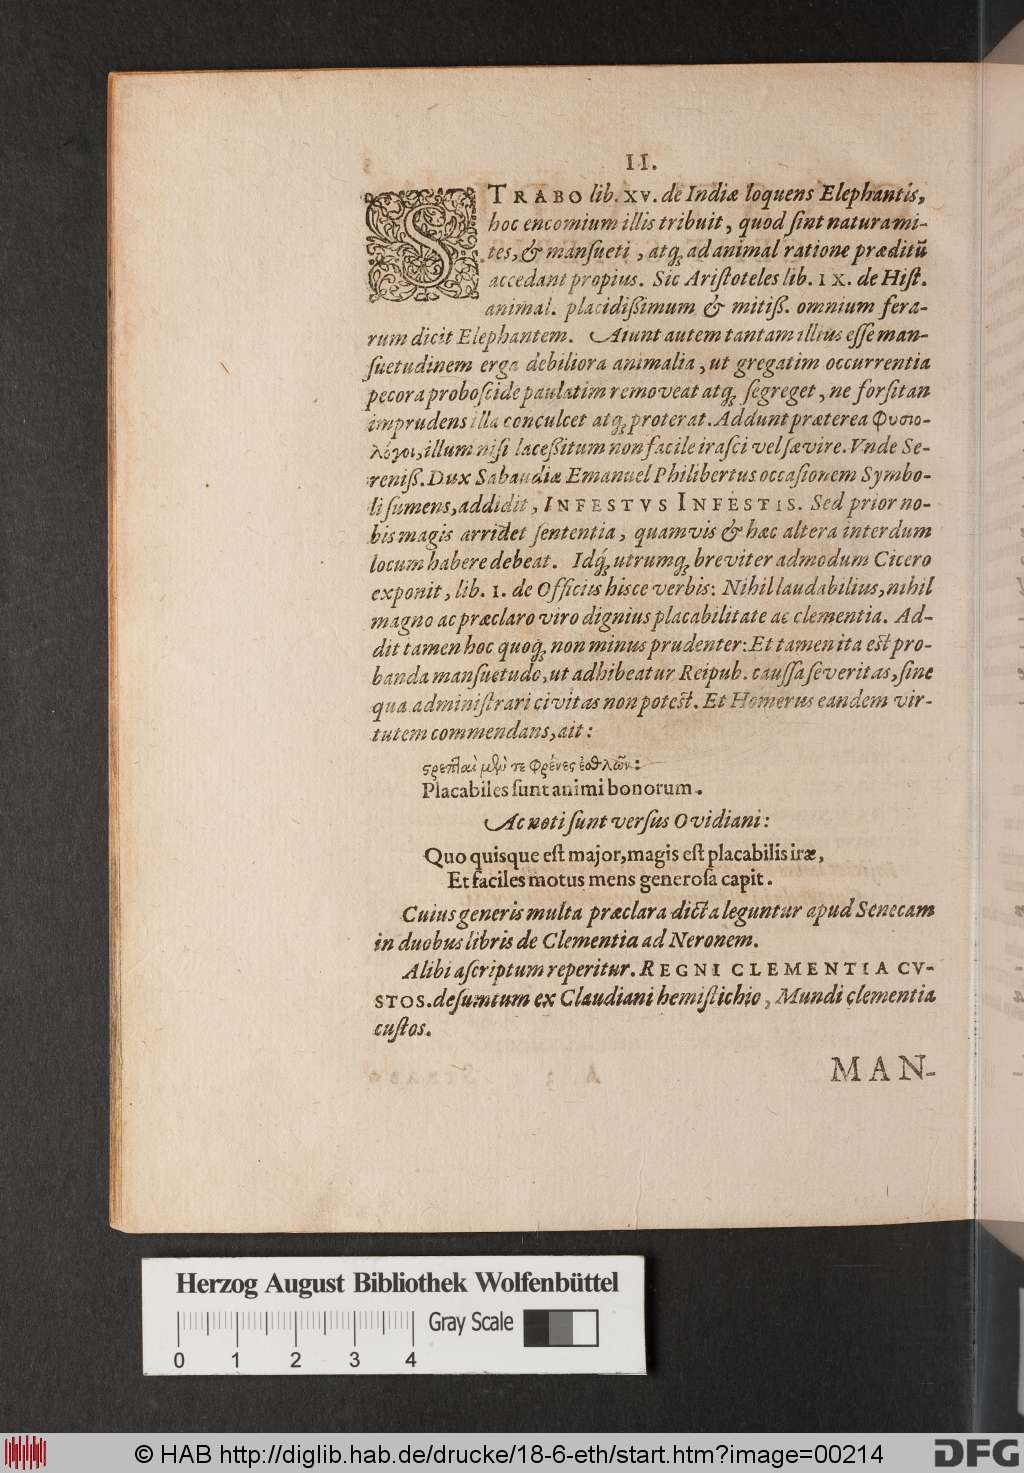 II.
STRABO lib. XV. de Indiæ loquens Elephantis,
hoc encomium illis tribuit, quod ſint natura mi-
tes, & manſueti, atq; ad animal ratione præditũ
accedant propius. Sic Ariſtoteles lib. IX. de Hiſt.
animal. placidißimum & mitiß. omnium fera-
rum dicit Elephantem. Aiunt autem tantam illius eſſe man-
ſuetudinem erga debiliora animalia, ut gregatim occurrentia
pecora proboſcide paulatim removeat atq; ſegreget, ne forſitan
imprudens illa conculcet atq; proterat. Addunt præterea Φυσιο-
λόγοι, illum niſi laceßitum non facile iraſci vel ſævire. Vnde Se-
reniß. Dux Sabaudiæ Emanuel Philibertus occaſionem Symbo-
li ſumens, addidit, INFESTVS INFESTIS. Sed prior no-
bis magis arridet ſententia, quamvis & hæc altera interdum
locum habere debeat. Idq́; utrumq; breviter admodum Cicero
exponit, lib. I. de Officiis hisce verbis: Nihil laudabilius, nihil
magno ac præclaro viro dignius placabilitate ac clementia. Ad-
dit tamen hoc quoq; non minus prudenter: Et tamen ita eſt pro-
banda manſuetudo, ut adhibeatur Reipub. cauſſa ſeveritas, ſine
qua adminiſtrari civitas non poteſt. Et Homerus eandem vir-
tutem commendans, ait:
ςρεπλαὶ μὲν τε φρένες ἐσθλῶν:
Placabiles ſunt animi bonorum.
Ac noti ſunt verſus Ovidiani:
Quo quisque eſt major, magis eſt placabilis iræ,
Et faciles motus mens generoſa capit.
Cuius generis multa præclara dicta leguntur apud Senecam
in duobus libris de Clementia ad Neronem.
Alibi aſcriptum reperitur. REGNI CLEMENTIA CV-
STOS. deſumtum ex Claudiani hemiſtichio, Mundi clementia
cuſtos.
MAN-
Herzog August Bibliothek Wolfenbüttel
Gray Scale
0 1 2 3 4
© HAB http://diglib.hab.de/drucke/18-6-eth/start.htm?image=00214
DFG